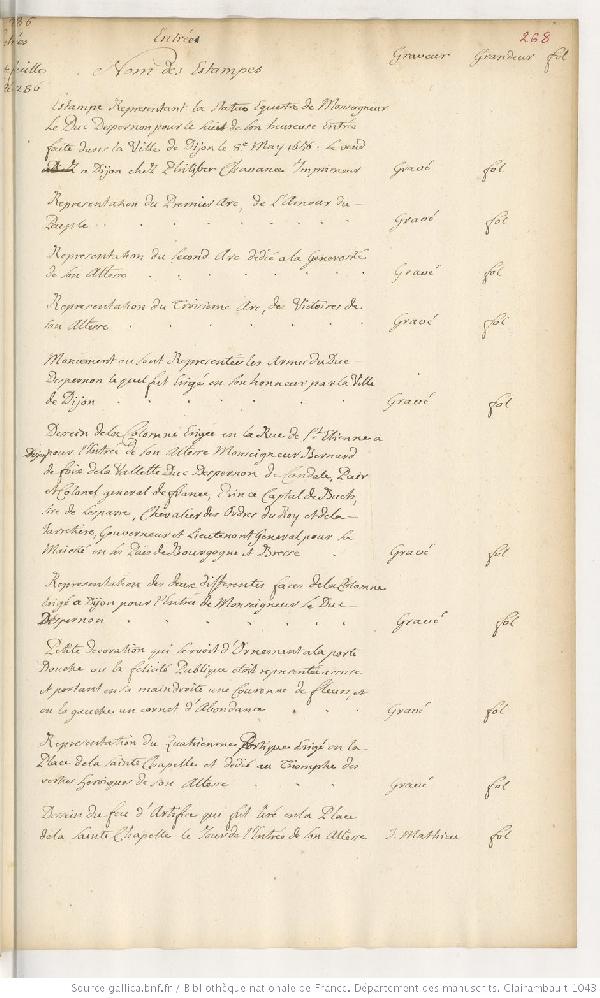 Entrées
268
Nom des Estampes Graveur Grandeur fol
Estampe Representant la statue Equestre de Monseigneur
Le Duc Despernon pour le sujet de son heureuse Entrée
faite dans la Ville de Dijon le 8e May 1656. Se vend
a Dijon chez Philiber Chavance Imprimeur Gravé fol
Representation du Premier Arc, de l'Amour du
Peuple Gravé fol
Representation du second Arc dedié a la Generosité
de son Altesse Gravé fol
Representation du Troisieme Arc, des Victoires de
son Altesse Gravé fol
Monument ou sont Representées les Armes du Duc
Despernon lequel fut Erigé en son honneur par la Ville
de Dijon Gravé fol
Dessin de la Colomne Erigée en la Rue de St. Etienne a
Dijon pour l'Entrée de son Altesse Monseigneur Bernard
de foix de la Vallette Duc Despernon de Candale, Pair
et Colonel general de france, Prince Captal de Buch,
sire de Lesparre, Chevalier des Ordres du Roy et de la
Jarretiere, Gouverneur et Lieutenant General pour sa
Majesté en ses Païs de Bourgogne et Bresse Gravé fol
Representation des deux differentes faces de la Colomne
Erigé a Dijon pour l'Entrée de Monseigneur le Duc
Despernon Gravé fol
Petite decoration qui servoit d'Ornement a la porte
Bouche ou la felicité Publique etoit representée assise
et portant en sa main droite une Couronne de fleurs, et
en la gauche un cornet d'Abondance Gravé fol
Representation du Quatrieme Portique Erigé en la
Place de la Sainte Chapelle et dedié au Triomphe des
vertus heroiques de son Altesse Gravé fol
Dessin du feu d'Artifice qui fut tiré en la Place
de la Sainte Chapelle le Jour de l'Entrée de son Altesse J. Mathieu fol
Source gallica.bnf.fr / Bibliothèque nationale de France. Département des manuscrits. Clairambault 1043